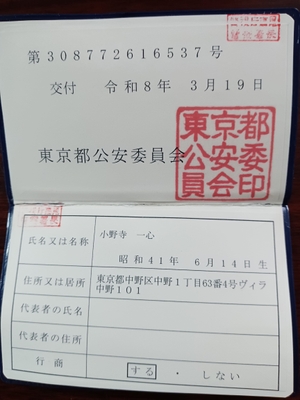 第３０８７７２６１６５３７号
交付　令和８年　３月１９日
東京都公安委員会
東京都
公安委
員会印
氏名又は名称
小野寺　一心
昭和４１年　６月１４日生
住所又は居所
東京都中野区中野１丁目63番4号ヴィラ
中野１０１
代表者の氏名
代表者の住所
行商
する　・　しない